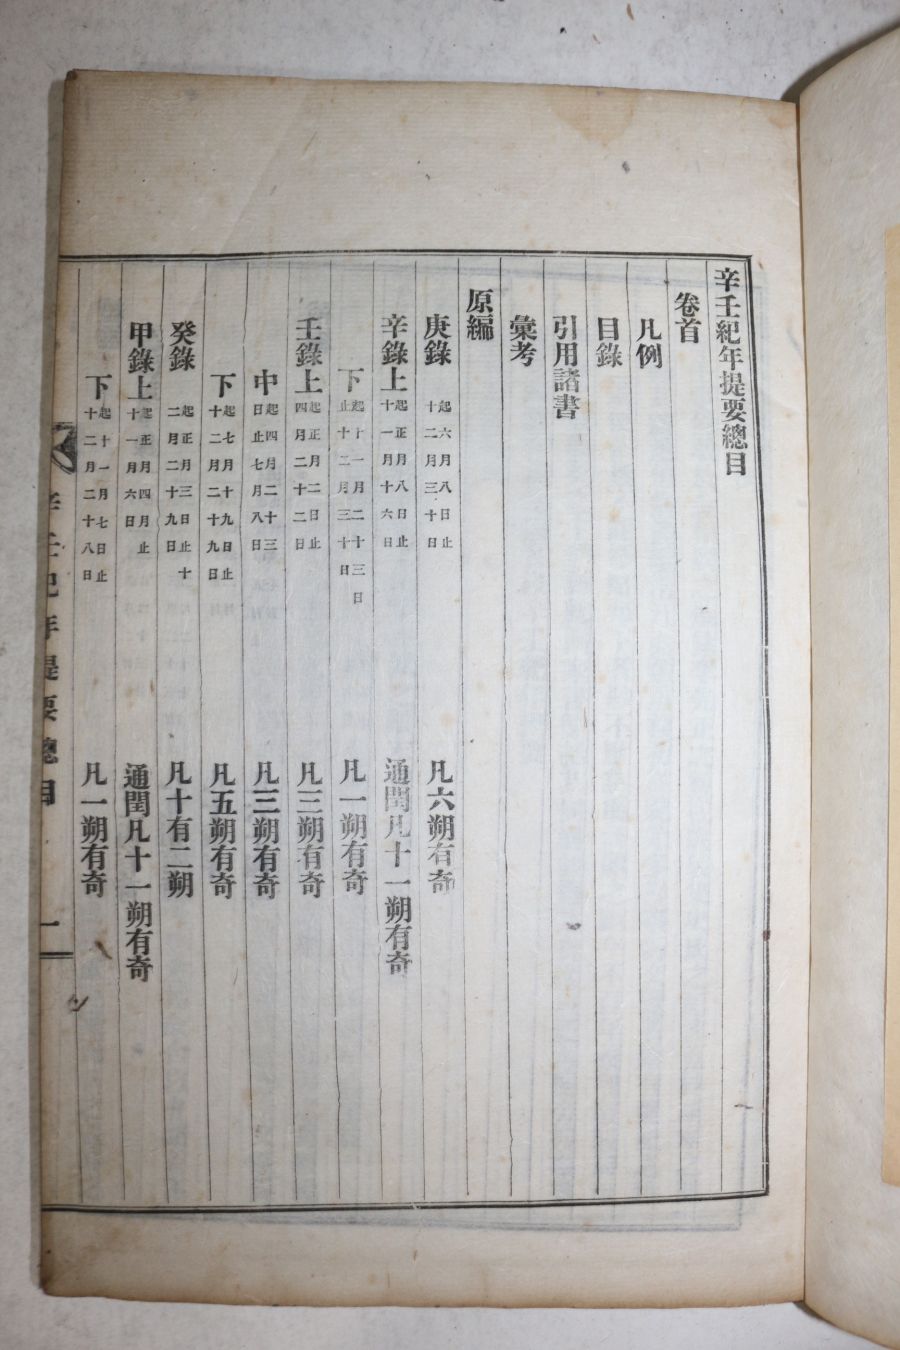 辛壬紀年提要總目
卷首
凡例
目錄
引用諸書
彙考
原編
庚錄 起六月八日止十二月三十日 凡六朔有奇
辛錄上 起正月八日止十一月十六日 通閏凡十一朔有奇
下 起十一月二十三日止十二月三十日 凡一朔有奇
壬錄上 起正月二日止四月二十二日 凡三朔有奇
中 起四月二十三日止七月八日 凡三朔有奇
下 起七月十九日止十二月二十九日 凡五朔有奇
癸錄 起正月三日止十二月二十九日 凡十有二朔
甲錄上 起正月四日止十一月六日 通閏凡十一朔有奇
下 起十一月七日止十二月二十八日 凡一朔有奇
辛壬紀年提要總目 一